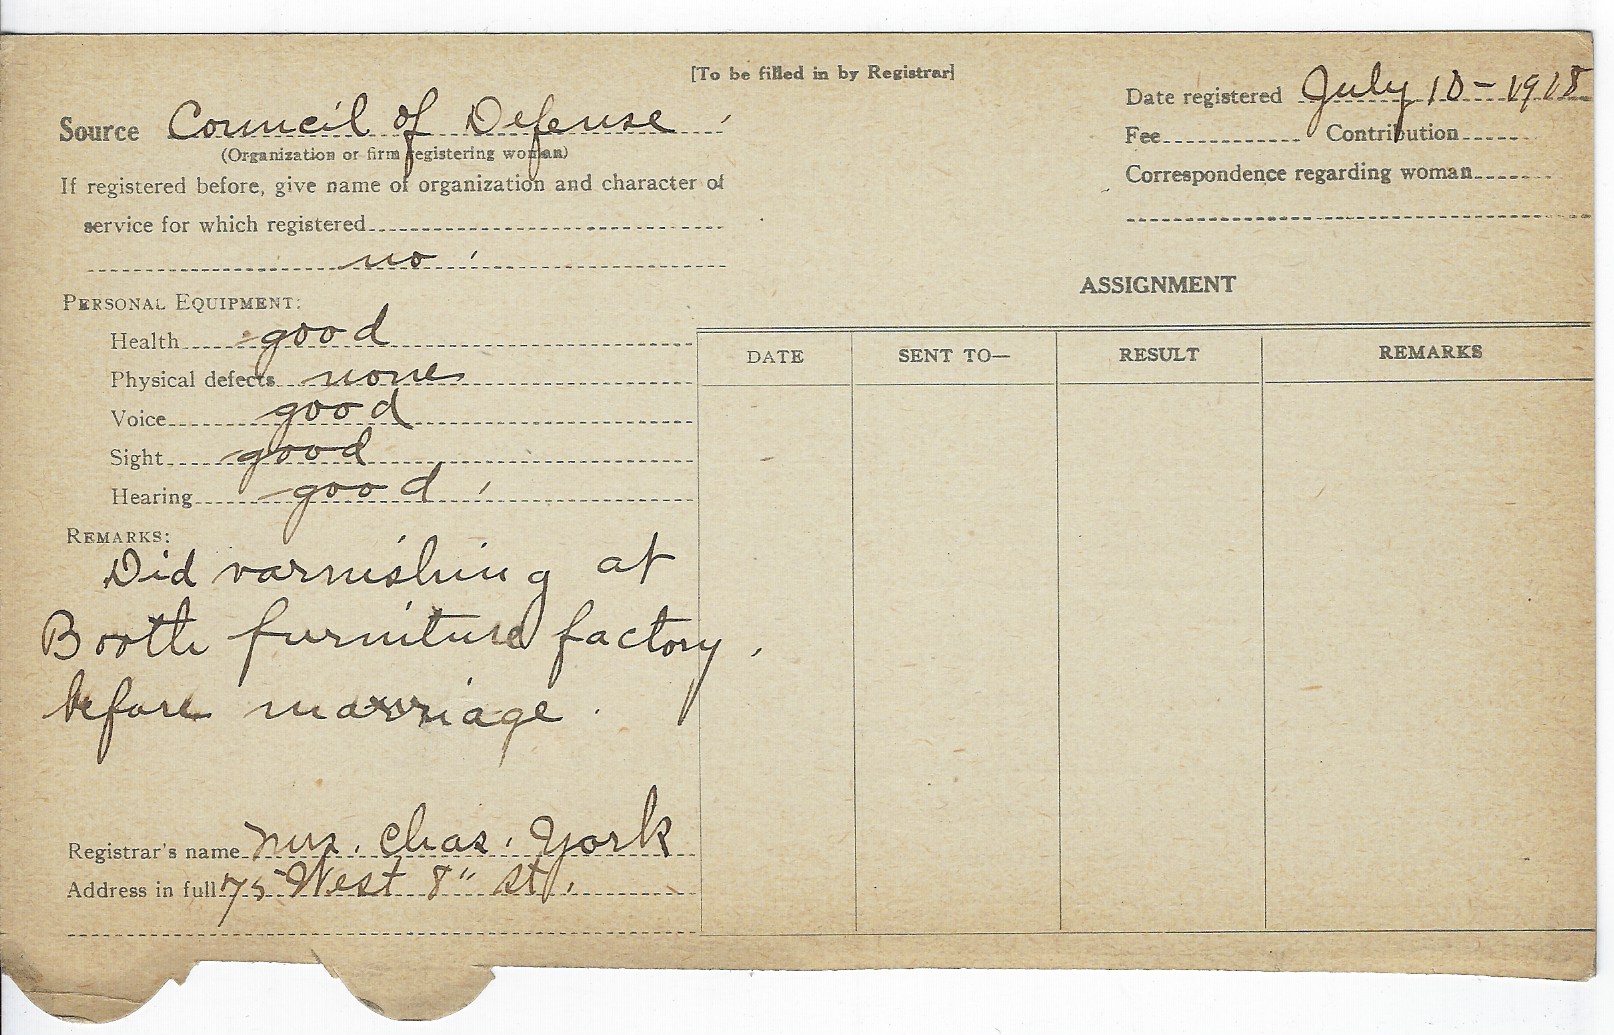 [To be filled in by Registrar]
Source Council of Defense
(Organization or firm registering woman)
If registered before, give name of organization and character of
service for which registered
no
Date registered July 10-1918
Fee Contribution
Correspondence regarding woman
PERSONAL EQUIPMENT:
Health good
Physical defects none
Voice good
Sight good
Hearing good
REMARKS:
Did varnishing at
Booth furniture factory,
before marriage.
Registrar's name Mrs. Chas. York
Address in full 75 West 8" St.
ASSIGNMENT
DATE SENT TO— RESULT REMARKS